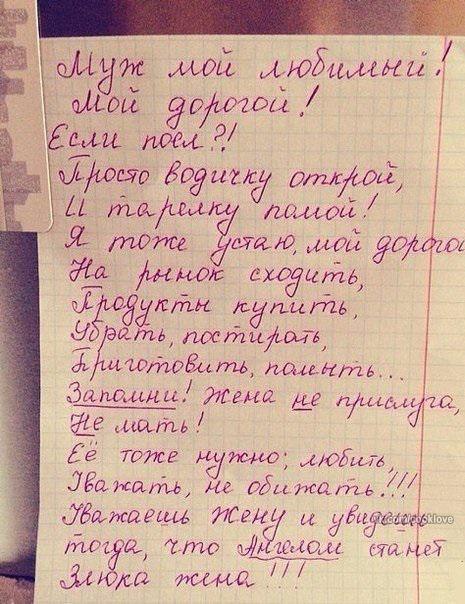 Муж мой любимый!
Мой дорогой!
Если поел?!
Просто водичку открой,
И тарелку помой!
Я тоже устаю, мой дорогой
На рынок сходить,
Продукты купить,
Убрать, постирать,
Приготовить, помыть...
Запомни! Жена не прислуга,
Не мать!
Её тоже нужно; любить,
Уважать, не обижать!!!
Уважаешь жену и увидишь
тогда, что Ангелом станет
Злюка жена!!!